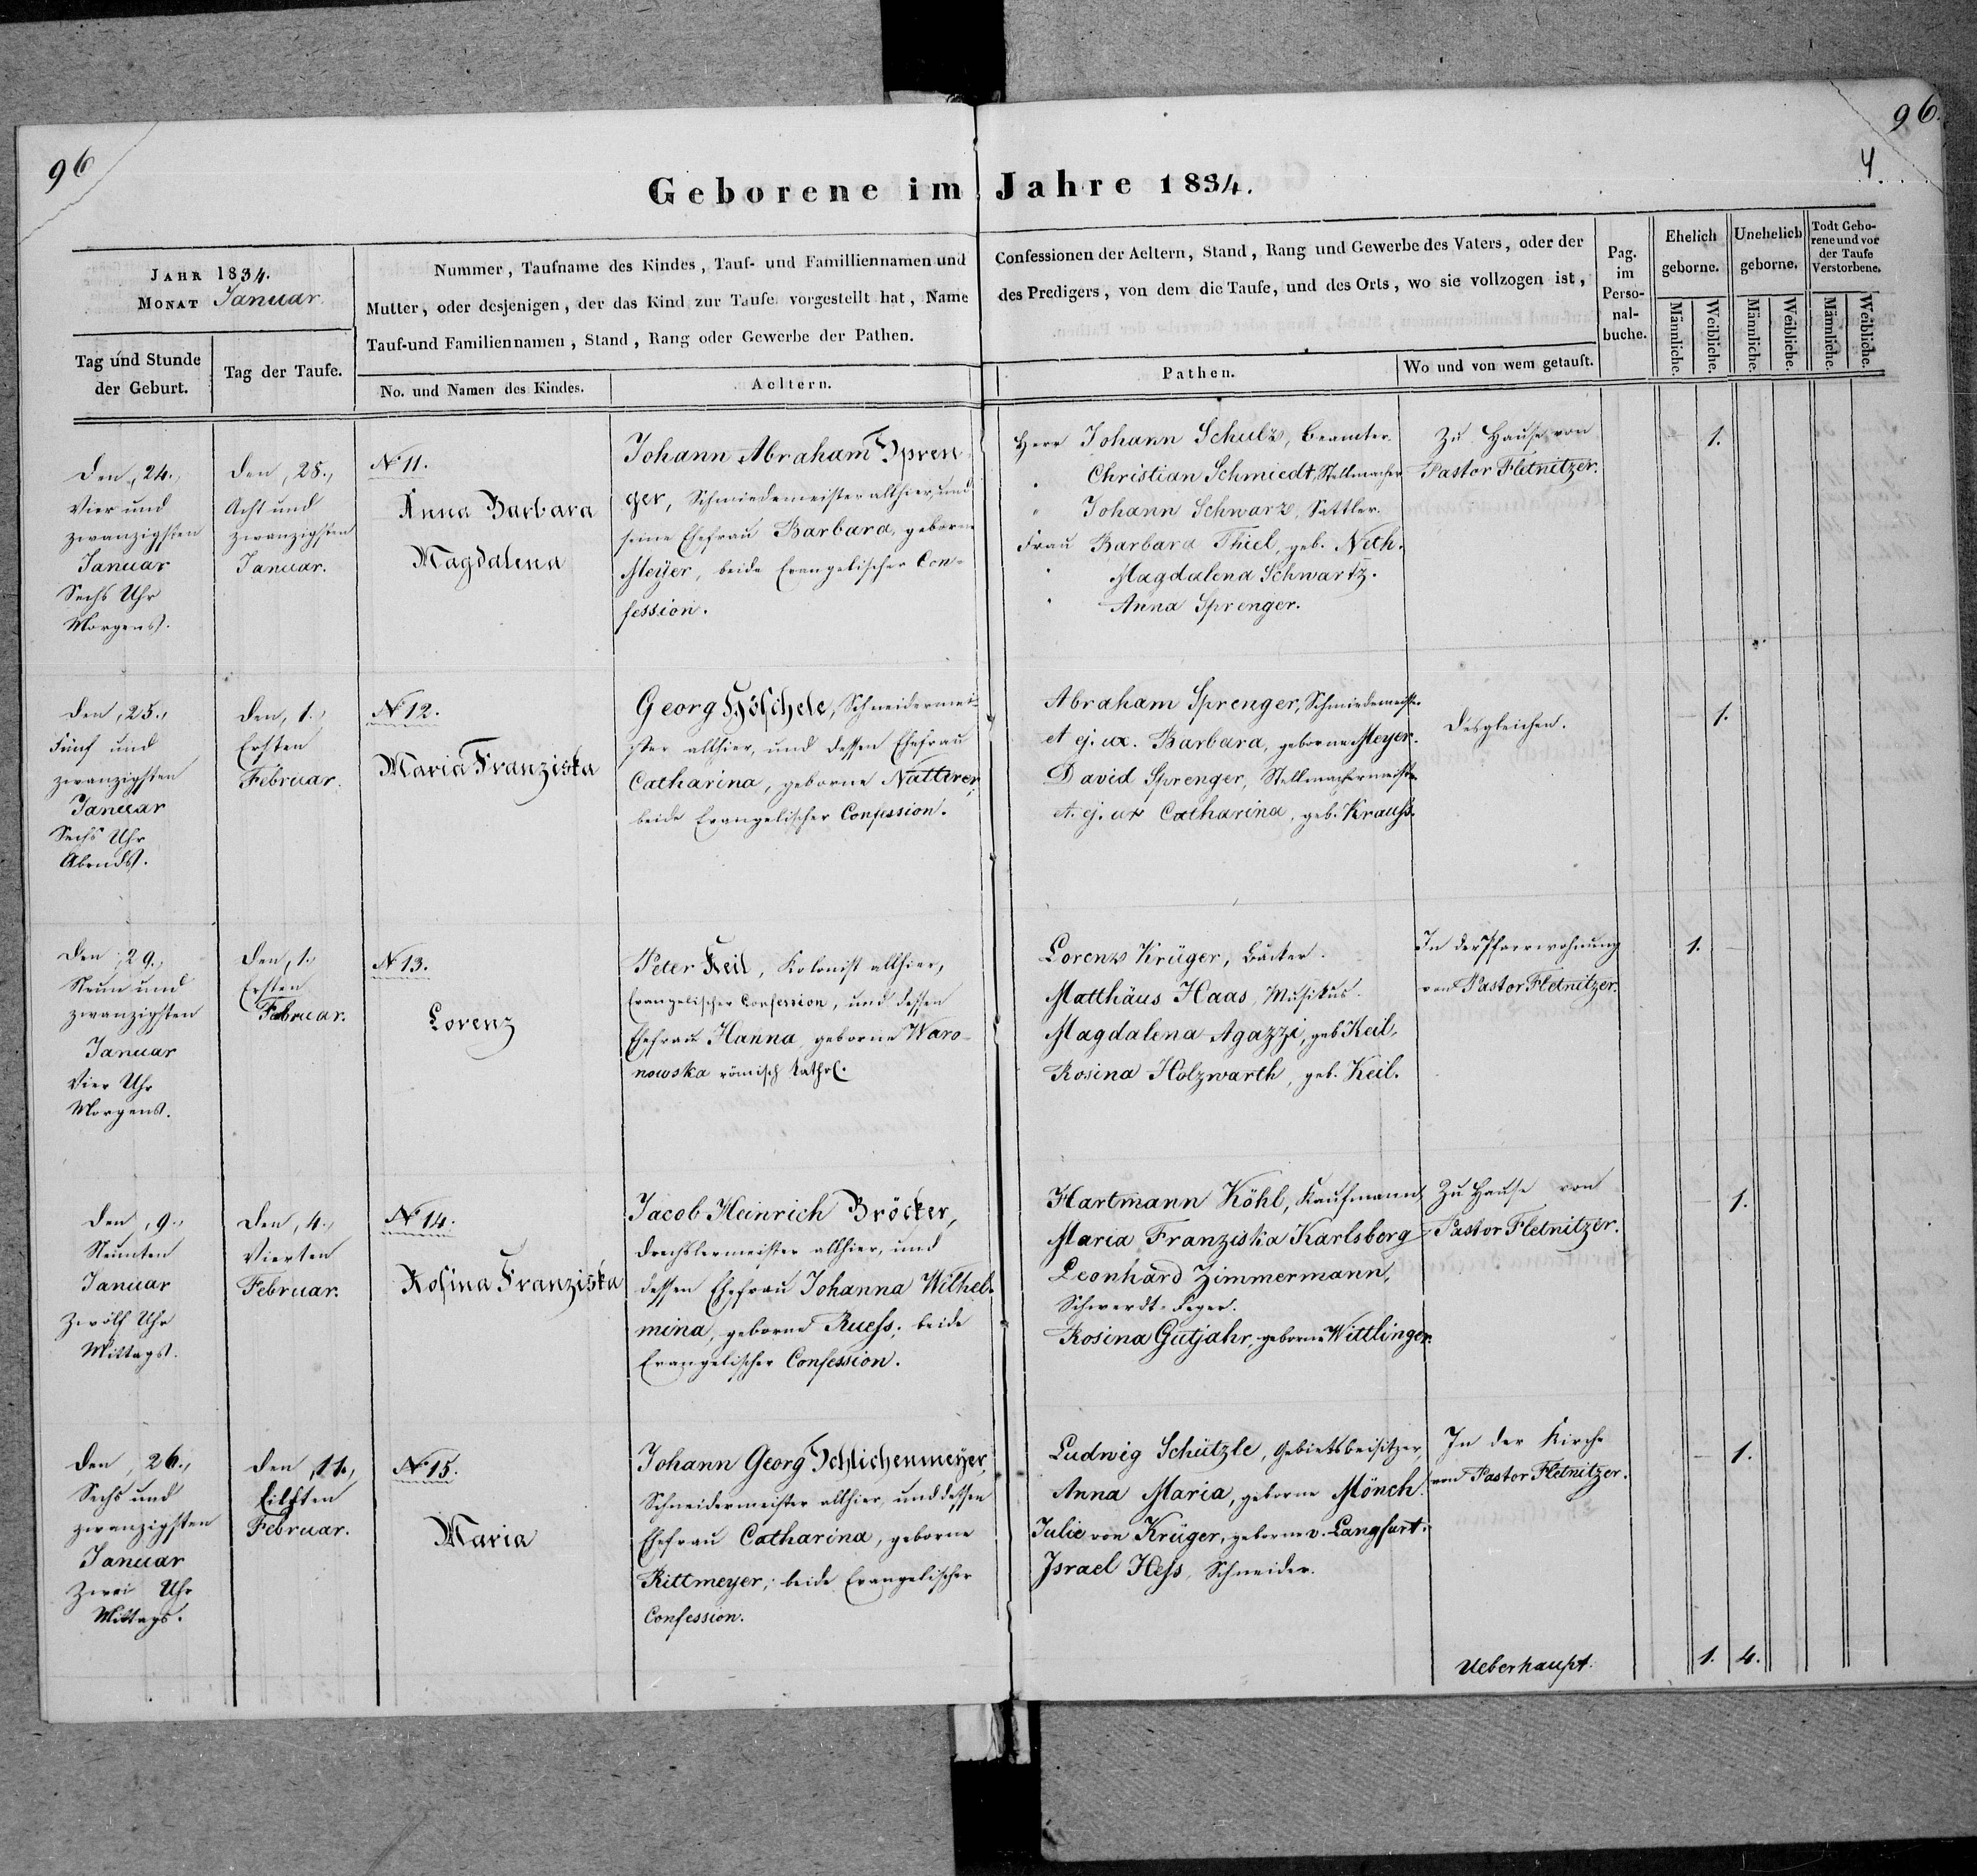 96
96.
4.
Geborene im Jahre 1834.
JAHR 1834.
MONAT Januar.
Nummer, Taufname des Kindes, Tauf- und Familliennamen und
Mutter, oder desjenigen, der das Kind zur Taufe vorgestellt hat, Name
Tauf-und Familiennamen, Stand, Rang oder Gewerbe der Pathen.
Confessionen der Aeltern, Stand, Rang und Gewerbe des Vaters, oder der
des Predigers, von dem die Taufe, und des Orts, wo sie vollzogen ist,
Pag. im Perso- nal- buche.
Ehelich geborne.
Unehelich geborne.
Todt Gebo- rene und vor der Taufe Verstorbene.
Tag und Stunde der Geburt.
Tag der Taufe.
No. und Namen des Kindes.
Aeltern.
Pathen.
Wo und von wem getauft.
Männliche.
Weibliche.
Männliche.
Weibliche.
Männliche.
Weibliche.
Den, 24.,
Vier und
zwanzigsten
Januar
Sechs Uhr
Morgens.
Den, 28.,
Acht und
zwanzigsten
Januar.
N 11.
Anna Barbara
Magdalena
Johann Abraham Spren-
ger, Schmiedemeister allhier, und
seine Ehefrau Barbara, geborne
Meyer, beide Evangelischer Con-
fession.
Herr Johann Schulz, Beamter.
" Christian Schmiedt, Stellmacher
" Johann Schwarz, Sattler.
Frau Barbara Thiel, geb. Neth.
" Magdalena Schwartz.
" Anna Sprenger.
Zu Hause von
Pastor Fletnitzer.
1.
Den, 25.,
Fünf und
zwanzigsten
Januar
Sechs Uhr
Abends.
Den, 1.,
Ersten
Februar.
N 12.
Maria Franziska
Georg Höschele, Schneidermei-
ster allhier, und dessen Ehefrau
Catharina, geborne Natterer,
beide Evangelischer Confession.
Abraham Sprenger, Schmiedemeister
et ej. ux. Barbara, geborne Meyer.
David Sprenger, Stellmachermeister
et. ej. ux Catharina, geb. Krauss.
Desgleichen.
1.
Den, 29.,
Neun und
zwanzigsten
Januar
Vier Uhr
Morgens.
Den, 1.,
Ersten
Februar.
N 13.
Lorenz
Peter Keil, Kolonist allhier,
Evangelischer Confession, und dessen
Ehefrau Hanna, geborne Waro-
nowska römisch kathol.
Lorenz Krüger, Bäcker.
Matthäus Haas, Musikus.
Magdalena Agazzi, geb. Keil.
Rosina Holzwarth, geb. Keil.
In der Pfarrwohnung
von Pastor Fletnitzer.
1.
Den, 9.,
Neunten
Januar
Zwölf Uhr
Mittags.
Den, 4.,
Vierten
Februar.
N 14.
Rosina Franziska
Jacob Heinrich Bröcker,
Drechslermeister allhier, und
dessen Ehefrau Johanna Wilhel-
mina, geborne Ruess; beide
Evangelischer Confession.
Hartmann Köhl, Kaufmann
Maria Franziska Karlsberg
Leonhard Zimmermann,
Schwerdt-Feger.
Rosina Gutjahr, geborne Wittlinger.
Zu Hause von
Pastor Fletnitzer.
1.
Den, 26.,
Sechs und
zwanzigsten
Januar
Zwei Uhr
Mittags.
Den, 11.,
Eilften
Februar.
N 15.
Maria
Johann Georg Schlichenmeyer,
Schneidermeister allhier, und dessen
Ehefrau Catharina, geborne
Rittmeyer; beide Evangelischer
Confession.
Ludwig Schützle, Gebietsbeisitzer,
Anna Maria, geborne Mönch.
Julie von Krüger, geborne v. Langfurt.
Israel Hess, Schneider.
In der Kirche
von Pastor Fletnitzer.
1.
Ueberhaupt.
1. 4.